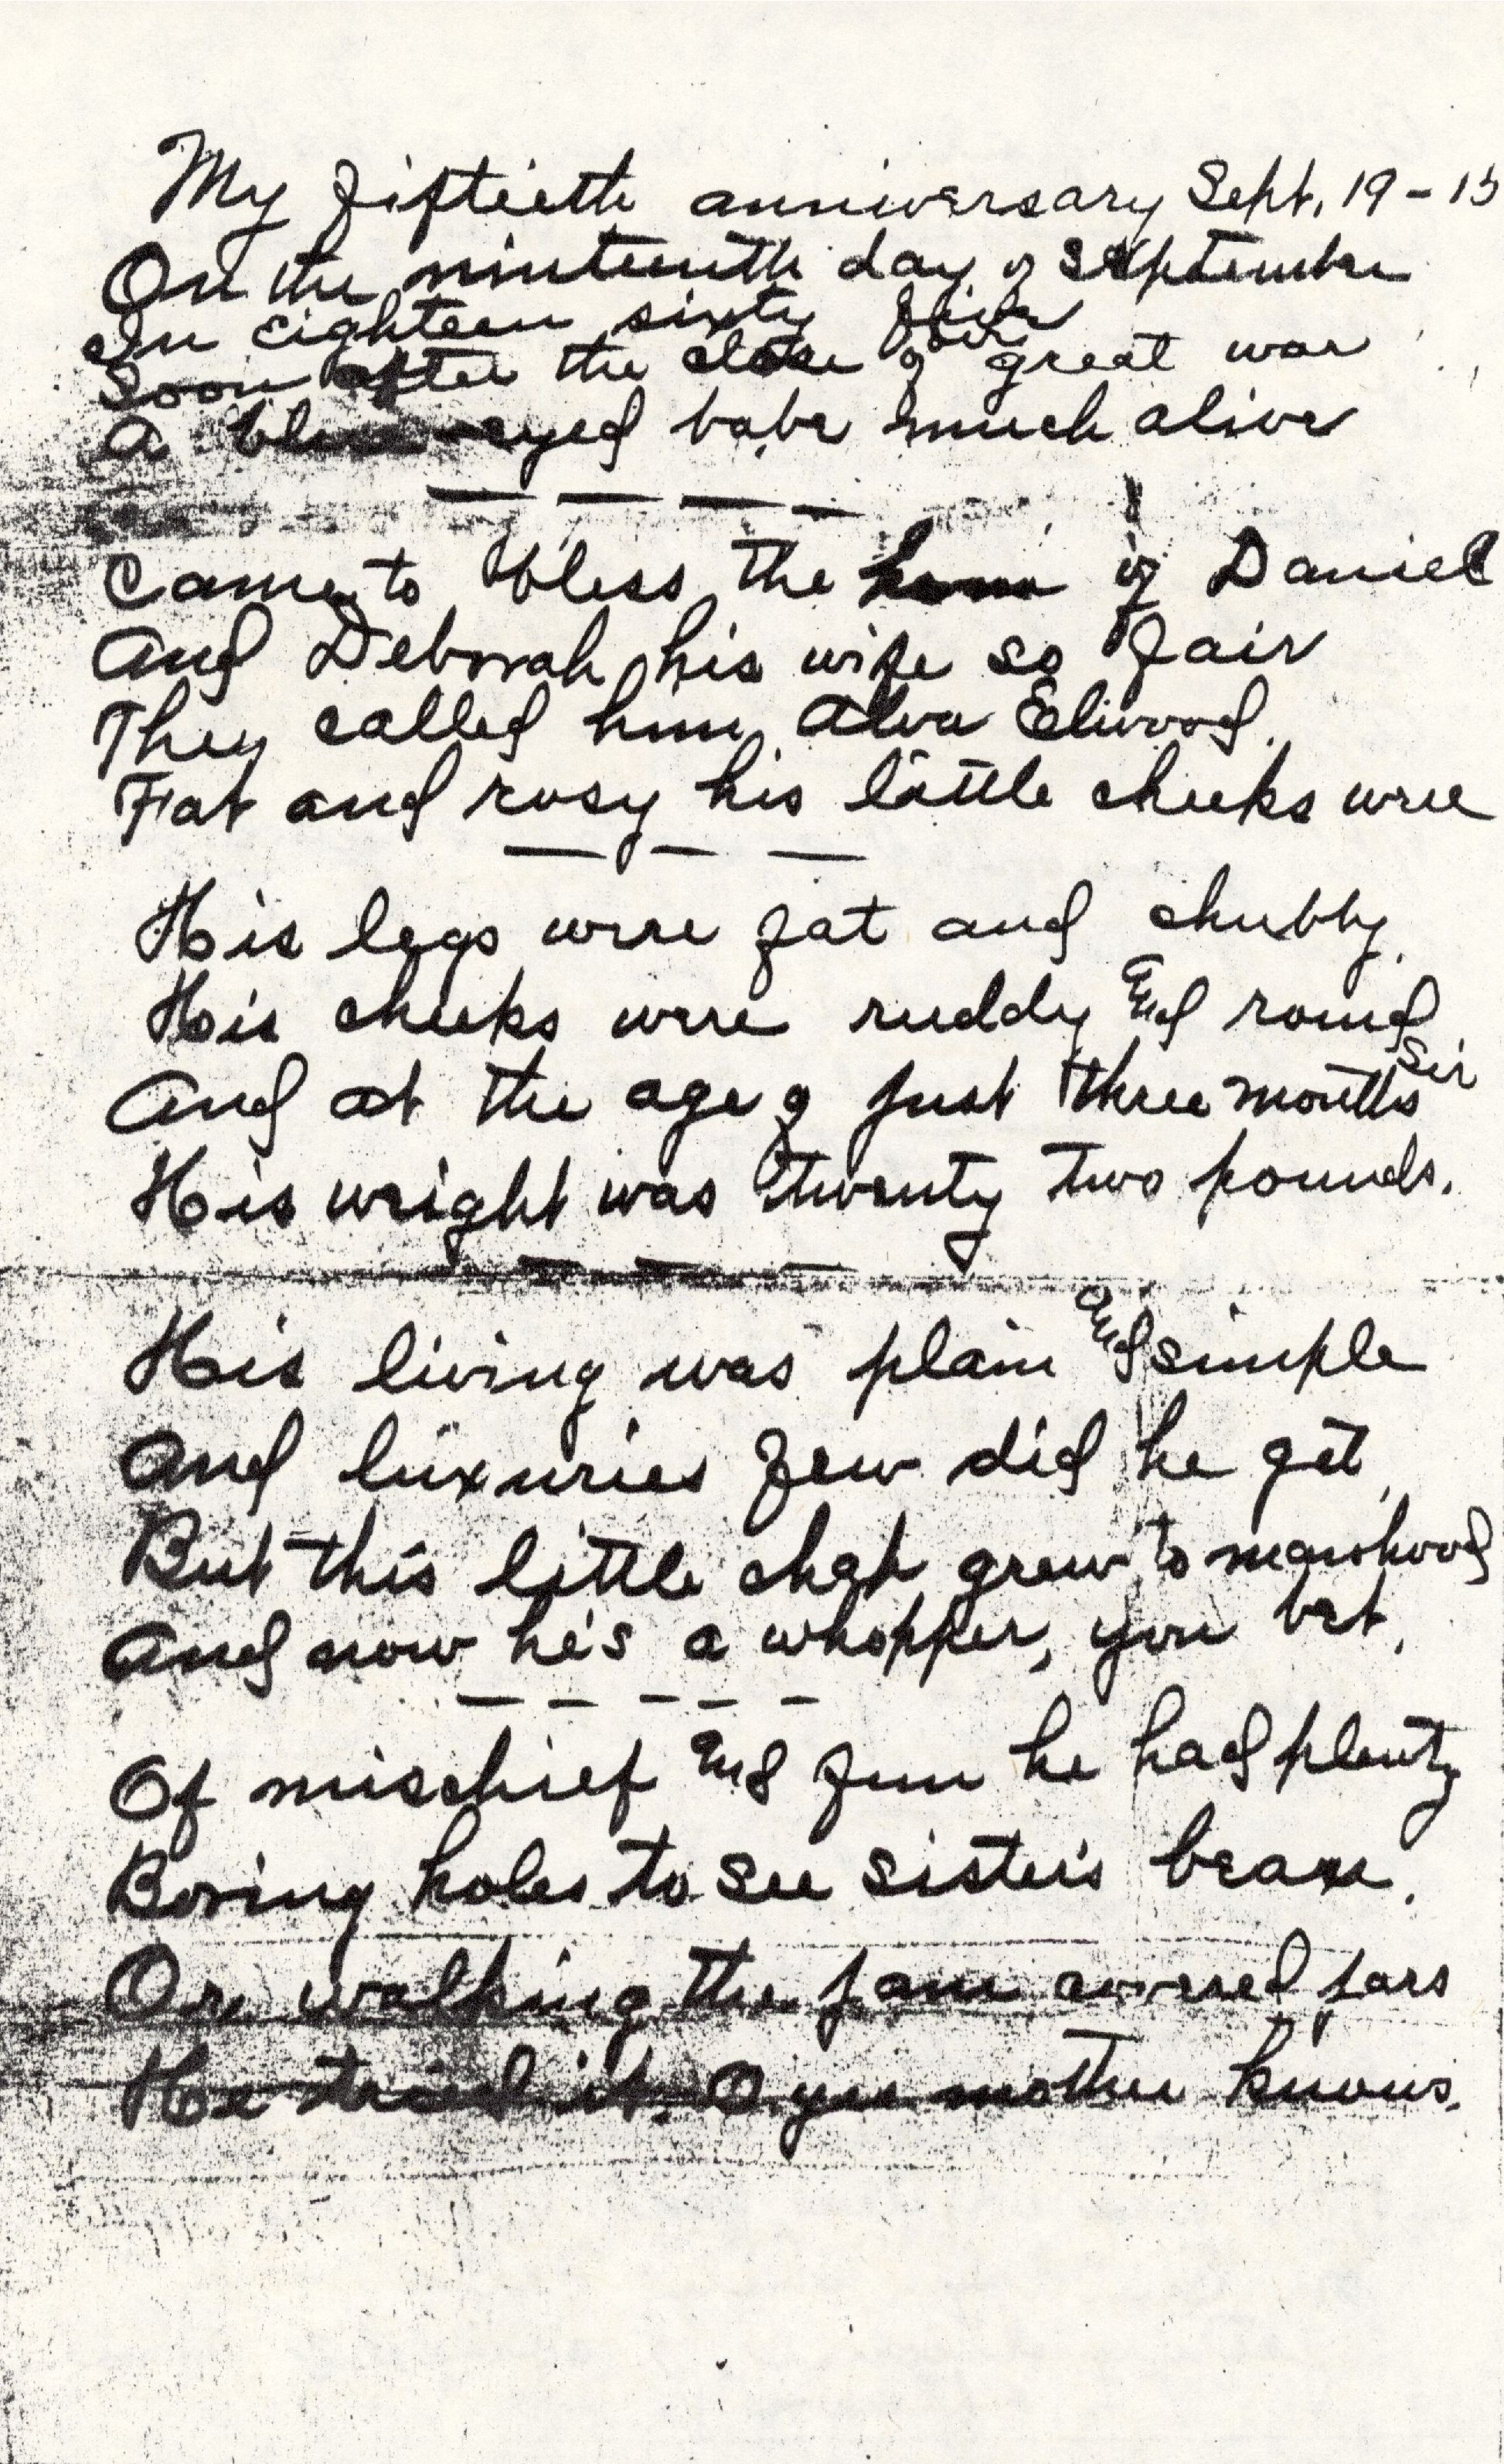 My fiftieth anniversary Sept. 19 - 15
On the ninteenth day of September
In eighteen sixty five
Soon after the close of our great war
A blue-eyed babe much alive
Came to bless the home of Daniel
And Deborah his wife so fair
They called him Alva Elwood.
Fat and rosy his little cheeks were
His legs were fat and chubby.
His cheeks were ruddy and round
And at the age of just three months sir
His weight was twenty two pounds.
His living was plain and simple
And luxuries few did he get.
But this little chap grew to manhood
And now he's a whopper, you bet.
Of mischief and fun he had plenty
Boring holes to see sister's beaux.
Or walking the jam jars
He tried it. O yes mother knows.